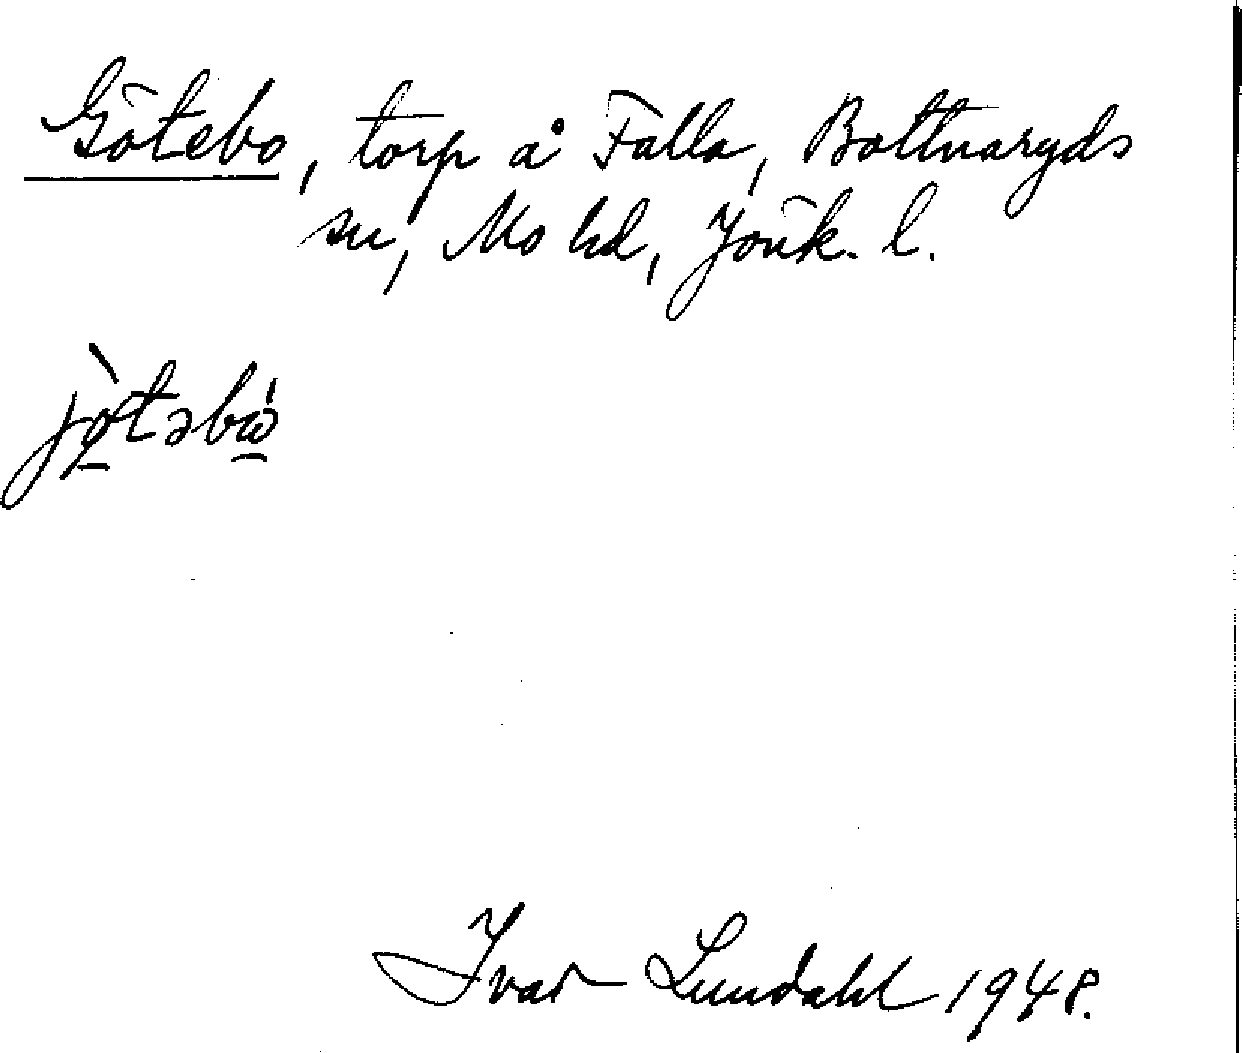 Götebo, torp å Falla, Bottnaryds
sn, Mo hd, Jönk. l.
jø̀təbὼ
Ivar Lundahl 1948.